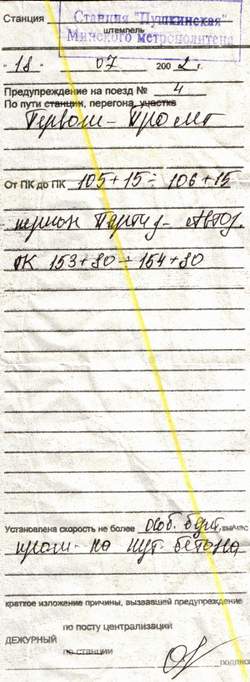 Станция Станция "Пушкинская"
штемпель
Минского метрополитена
18 07 2002 г.
Предупреждение на поезд № 4
По пути станции, перегона, участка
Первом - Пролет
От ПК до ПК 105+15 ÷ 106+15
перегон Партиз - Автоз.
ПК 153+80 ÷ 154+80
Установлена скорость не более особ. бдит. км/час
пром- на пут. бетона
краткое изложение причины, вызвавшей предупреждение
по посту централизации
ДЕЖУРНЫЙ
по станции
подпись